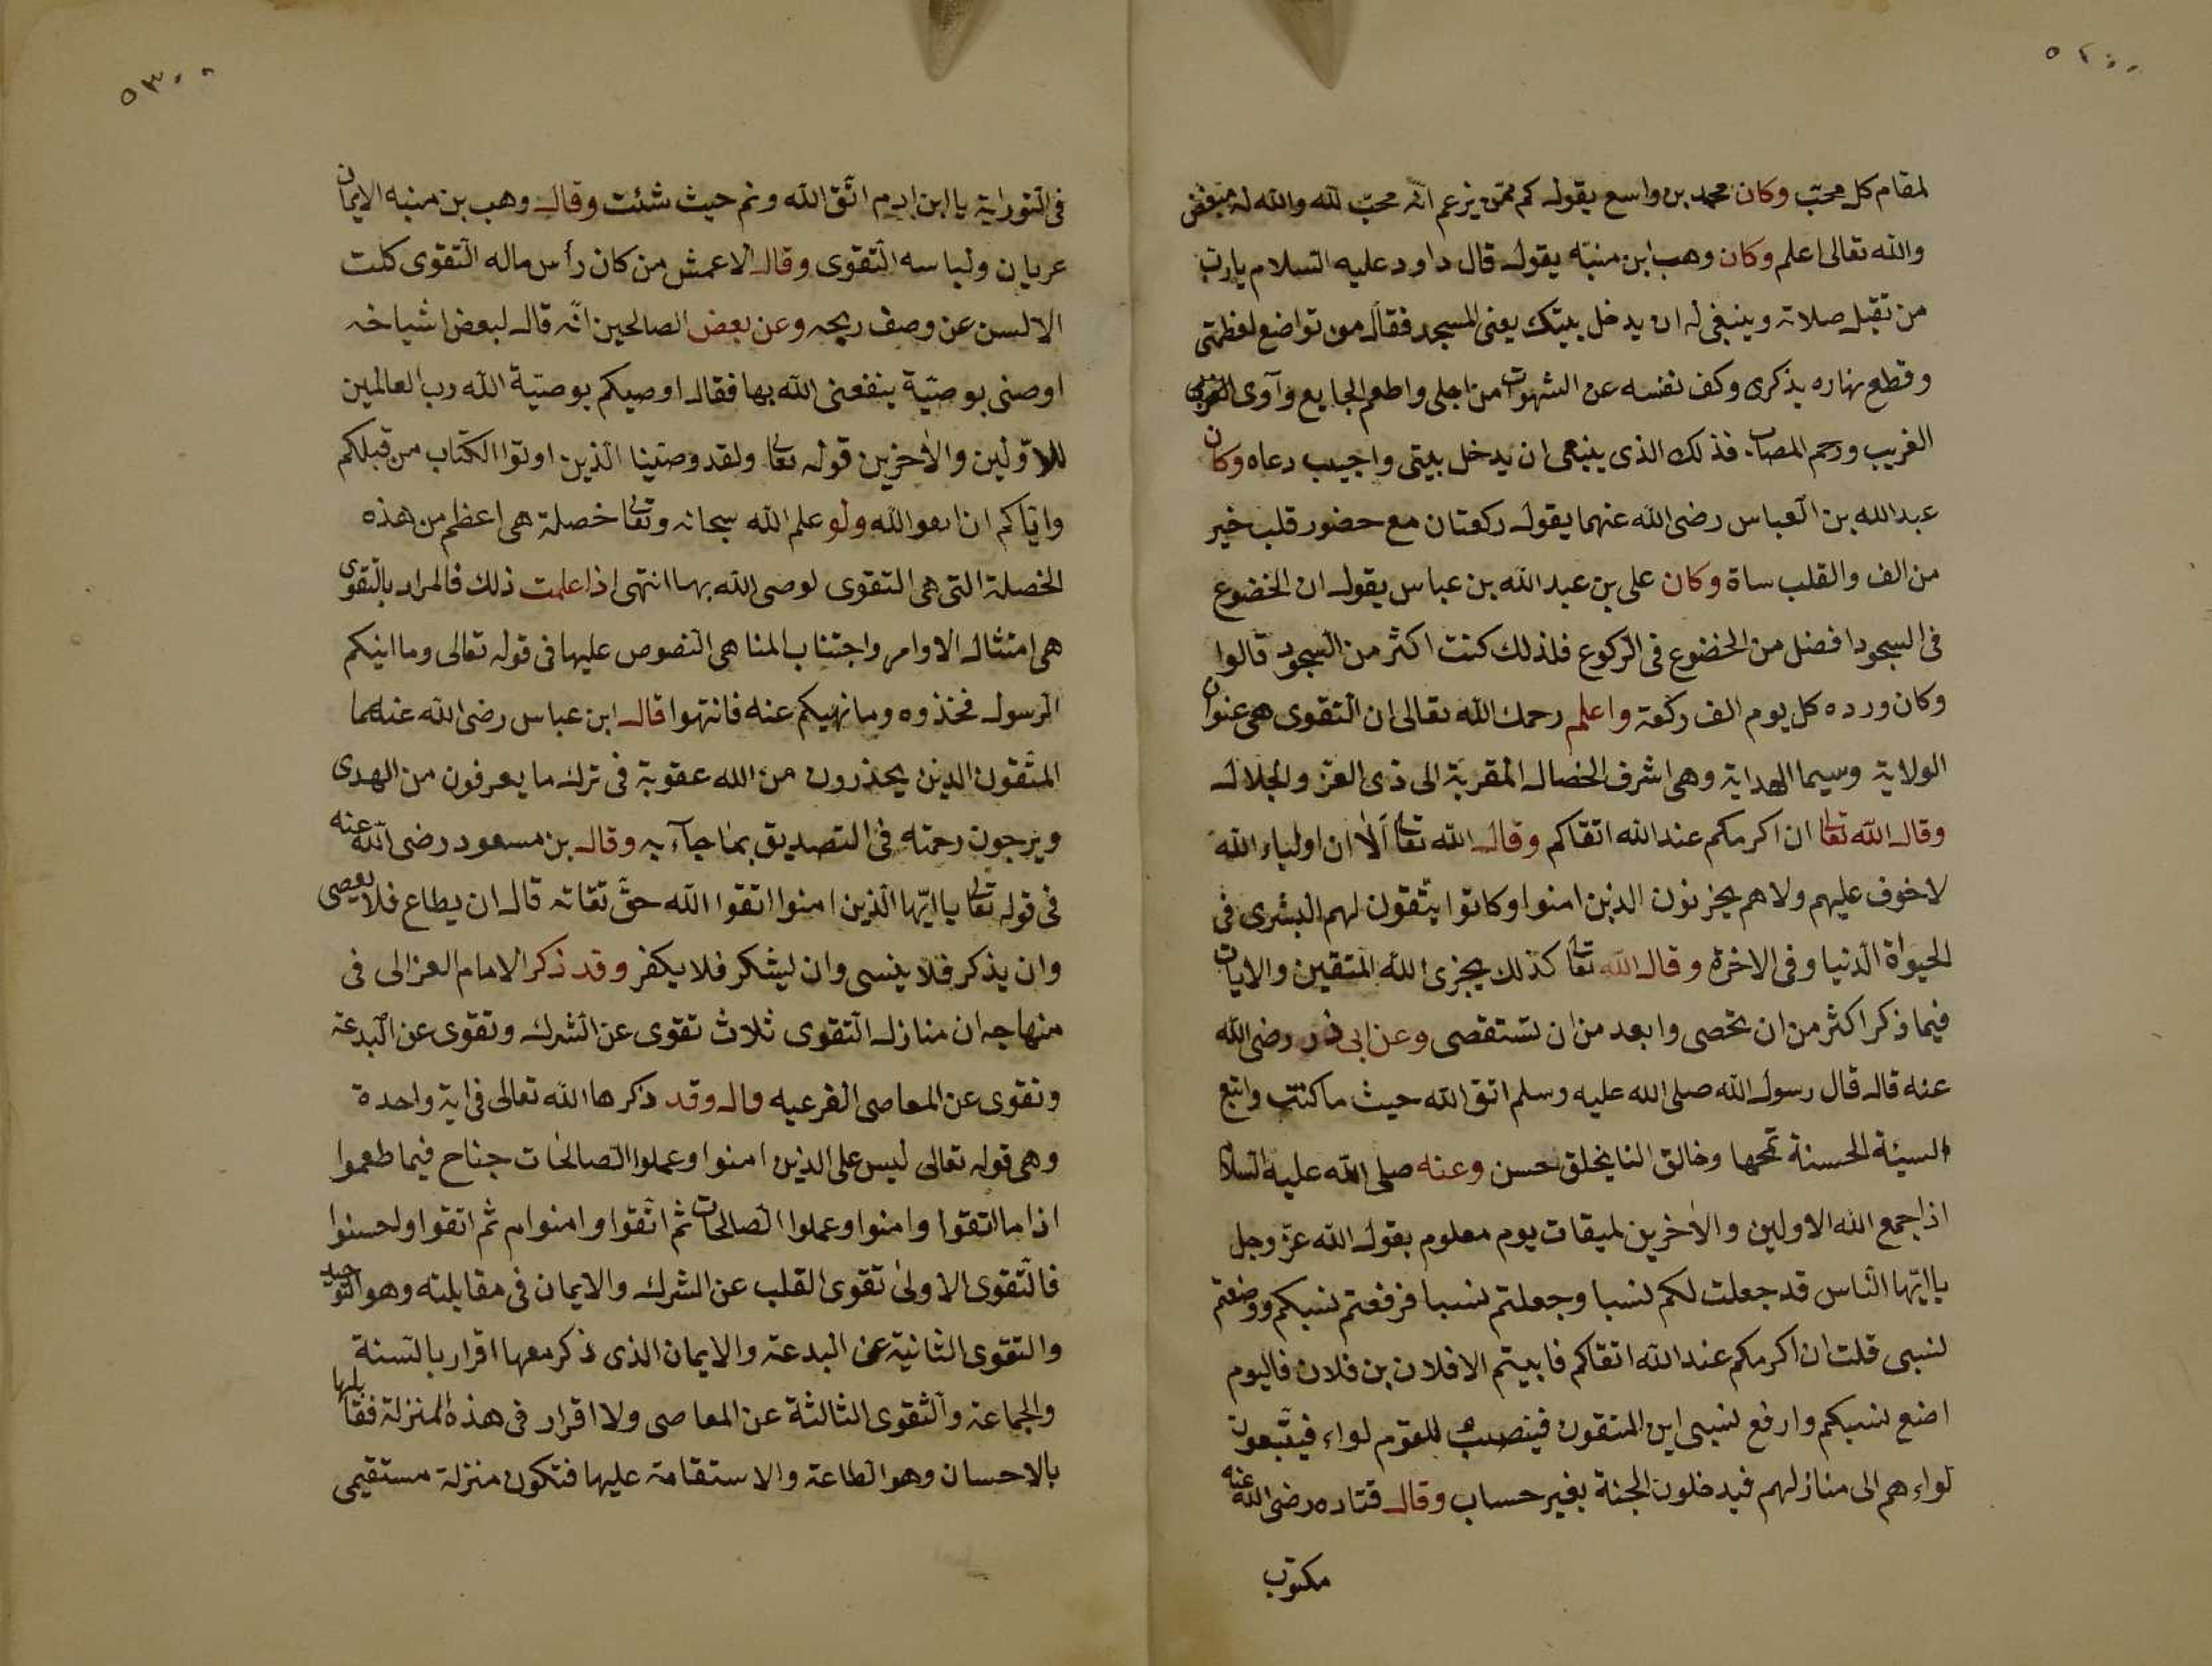 ٥٢
لمقام كل محبّ وكان محمد بن واسع يقول كم ممّن يزعم انّه محبّ لله والله له مبغض
والله تعالى اعلم وكان وهب ابن منبّه يقول قال داود عليه السلام يا ربّ
من تقبل صلاته وينبغي له ان يدخل بيتك يعنى المسجد فقال من تواضع لعظمتى
وقطع نهاره بذكرى وكف نفسه عن الشهوات من اجلى واطعم الجايع وآوى
الغريب ورحم المصاب فذلك الذى ينبغى ان يدخل بيتى واجيب دعاه وكان
عبد الله بن العباس رضى الله عنهما يقول ركعتان مع حضور قلب خير
من الف والقلب ساة وكان على بن عبد الله بن عباس يقول ان الخضوع
فى السجود افضل من الخضوع فى الركوع فلذلك كنت اكثر من السجود قالوا
وكان ورده كل يوم الف ركعة واعلم رحمك الله تعالى ان التقوى هى عنوان
الولاية وسيما الهداية وهى اشرف الخصال المقربة الى ذى العز والجلال
وقال الله تعالى ان اكرمكم عند الله اتقاكم وقال الله تعالى ألا ان اولياء الله
لا خوف عليهم ولا هم يحزنون الذين امنوا وكانوا يتّقون لهم البشرى فى
الحيواة الدنيا وفى الاخرة وقال الله تعالى كذلك يجزى الله المتقين والايات
فيما ذكر اكثر من ان تحصى وابعد من ان تستقصى وعن ابى ذر رضى الله
عنه قال قال رسول الله صلى الله عليه وسلم اتق الله حيث ما كنت واتبع
السيئة الحسنة تمحها وخالق الناس بخلق حسن وعنه صلى الله عليه السلام
اذا جمع الله الاولين والاخرين لميقات يوم معلوم يقول الله عزّ وجل
يا ايّها النّاس قد جعلت لكم نسبا وجعلتم نسبا فرفعتم نسبكم ووضعتم
نسبى قلت ان اكرمكم عند الله اتقاكم فابيتم الا فلان بن فلان فاليوم
اضع نسبكم وارفع نسبى اين المتقون فينصب للقوم لواء فيتّبعون
لواءهم الى منازلهم فيدخلون الجنة بغير حساب وقال قتاده رضى الله عنه
مكتوب
٥٣
فى التوراية يا ابن ادم اتّق الله ونم حيث شئت وقال وهب بن منبه الايمان
عريان ولباسه التّقوى وقال الاعمش من كان رأس ماله التّقوى كلت
الالسن عن وصف ربحه وعن بعض الصالحين انّه قال لبعض اشياخه
اوصنى بوصيّة ينفعنى الله بها فقال اوصيكم بوصيّة الله رب العالمين
للاوّلين والاخرين قوله تعالى ولقد وصّينا الذين اوتوا الكتاب من قبلكم
وايّاكم ان اتقوا الله ولو علم الله سبحانه وتعالى خصلة هى اعظم من هذه
الخصلة التى هى التقوى لوصى الله بها انتهى اذا علمت ذلك فالمراد بالتّقوى
هى امتثال الاوامر واجتناب المناهى النصوص عليها فى قوله تعالى وما اتيكم
الرسول فخذوه وما نهيكم عنه فانتهوا قال ابن عباس رضى الله عنهما
المتّقون الذين يحذرون من الله عقوبة فى ترك ما يعرفون من الهدى
ويرجون رحمته فى التصديق بما جآء به وقال بن مسعود رضى الله عنه
فى قوله تعالى يا ايّها الّذين امنوا اتقوا الله حقّ تقاته قال ان يطاع فلا يعصى
وان يذكر فلا ينسى وان ليشكر فلا يكفر وقد ذكر الامام الغزالى فى
منهاجه ان منازل التّقوى ثلاث تقوى عن الشرك وتقوى عن البدعة
وتقوى عن المعاصى الفرعيه قال وقد ذكرها الله تعالى فى اية واحدة
وهى قوله تعالى ليس على الذين امنوا وعملوا الصالحات جناح فيما طعموا
اذا ما اتقوا وامنوا وعملوا الصالحات ثم اتّقوا وامنوا ثم اتقوا واحسنوا
فالتّقوى الاولى تقوى القلب عن الشرك والايمان فى مقابلته وهو التوحيد
والتقوى الثانية عن البدعة والايمان الذى ذكر معها اقرار بالسنة
والجماعة والتّقوى الثالثة عن المعاصى ولا اقرار فى هذه المنزلة فقابلها
بالاحسان وهو الطاعة والاستقامة عليها فتكون منزلة مستقيمى